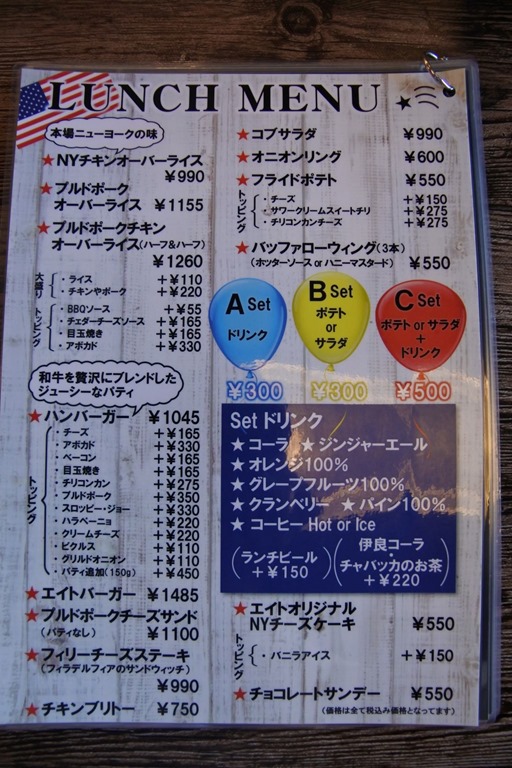 LUNCH MENU
本場ニューヨークの味
★NYチキンオーバーライス
¥990
★プルドポーク
オーバーライス ¥1155
★プルドポークチキン
オーバーライス(ハーフ&ハーフ)
¥1260
大盛り
・ライス +¥110
・チキンやポーク +¥220
トッピング
・BBQソース +¥55
・チェダーチーズソース +¥165
・目玉焼き +¥165
・アボカド +¥330
和牛を贅沢にブレンドした
ジューシーなパティ
★ハンバーガー ¥1045
トッピング
・チーズ +¥165
・アボカド +¥330
・ベーコン +¥165
・目玉焼き +¥165
・チリコンカン +¥275
・プルドポーク +¥350
・スロッピー・ジョー +¥330
・ハラペーニョ +¥220
・クリームチーズ +¥220
・ピクルス +¥110
・グリルドオニオン +¥110
・パティ追加(150g) +¥450
★エイトバーガー ¥1485
★プルドポークチーズサンド
(パティなし) ¥1100
★フィリーチーズステーキ
(フィラデルフィアのサンドウィッチ)
¥990
★チキンブリトー ¥750
★コブサラダ ¥990
★オニオンリング ¥600
★フライドポテト ¥550
トッピング
・チーズ +¥150
・サワークリームスイートチリ +¥275
・チリコンカンチーズ +¥275
★バッファローウィング(3本)
(ホッターソース or ハニーマスタード) ¥550
A Set
ドリンク
¥300
B Set
ポテト
or
サラダ
¥300
C Set
ポテト or サラダ
+
ドリンク
¥500
Set ドリンク
★コーラ ★ジンジャーエール
★オレンジ100%
★グレープフルーツ100%
★クランベリー ★パイン100%
★コーヒー Hot or Ice
(ランチビール
+¥150)
(伊良コーラ
・
チャバッカのお茶
+¥220)
★エイトオリジナル
NYチーズケーキ ¥550
トッピング
・バニラアイス +¥150
★チョコレートサンデー ¥550
(価格は全て税込み価格となってます)